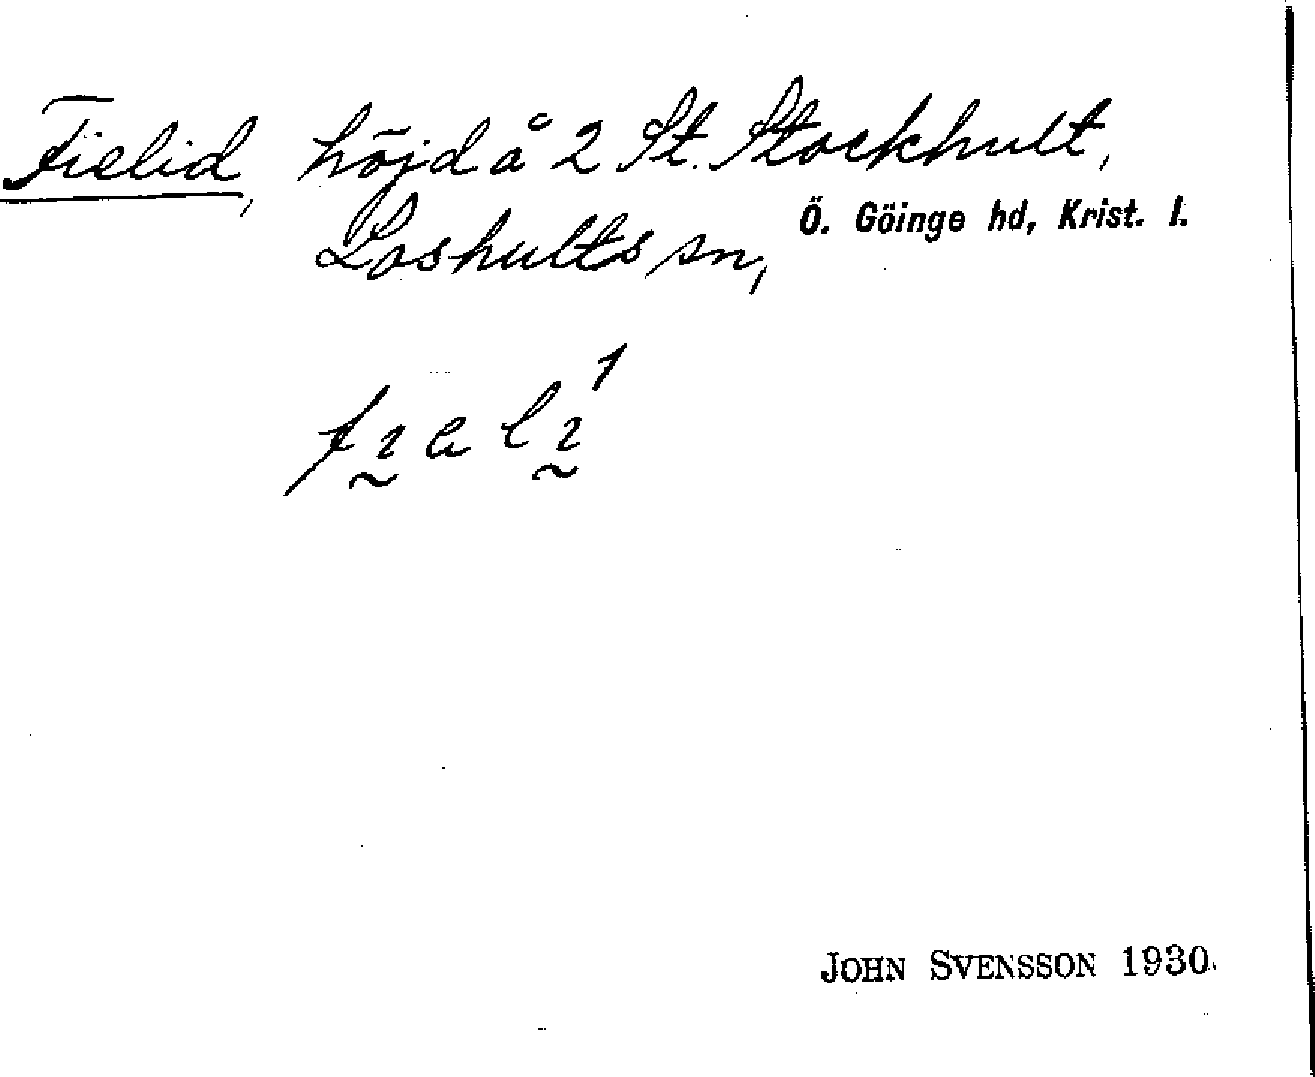 Fielid, höjd å 2 St. Stockhult,
Loshults sn, Ö. Göinge hd, Krist. l.
JOHN SVENSSON 1930.